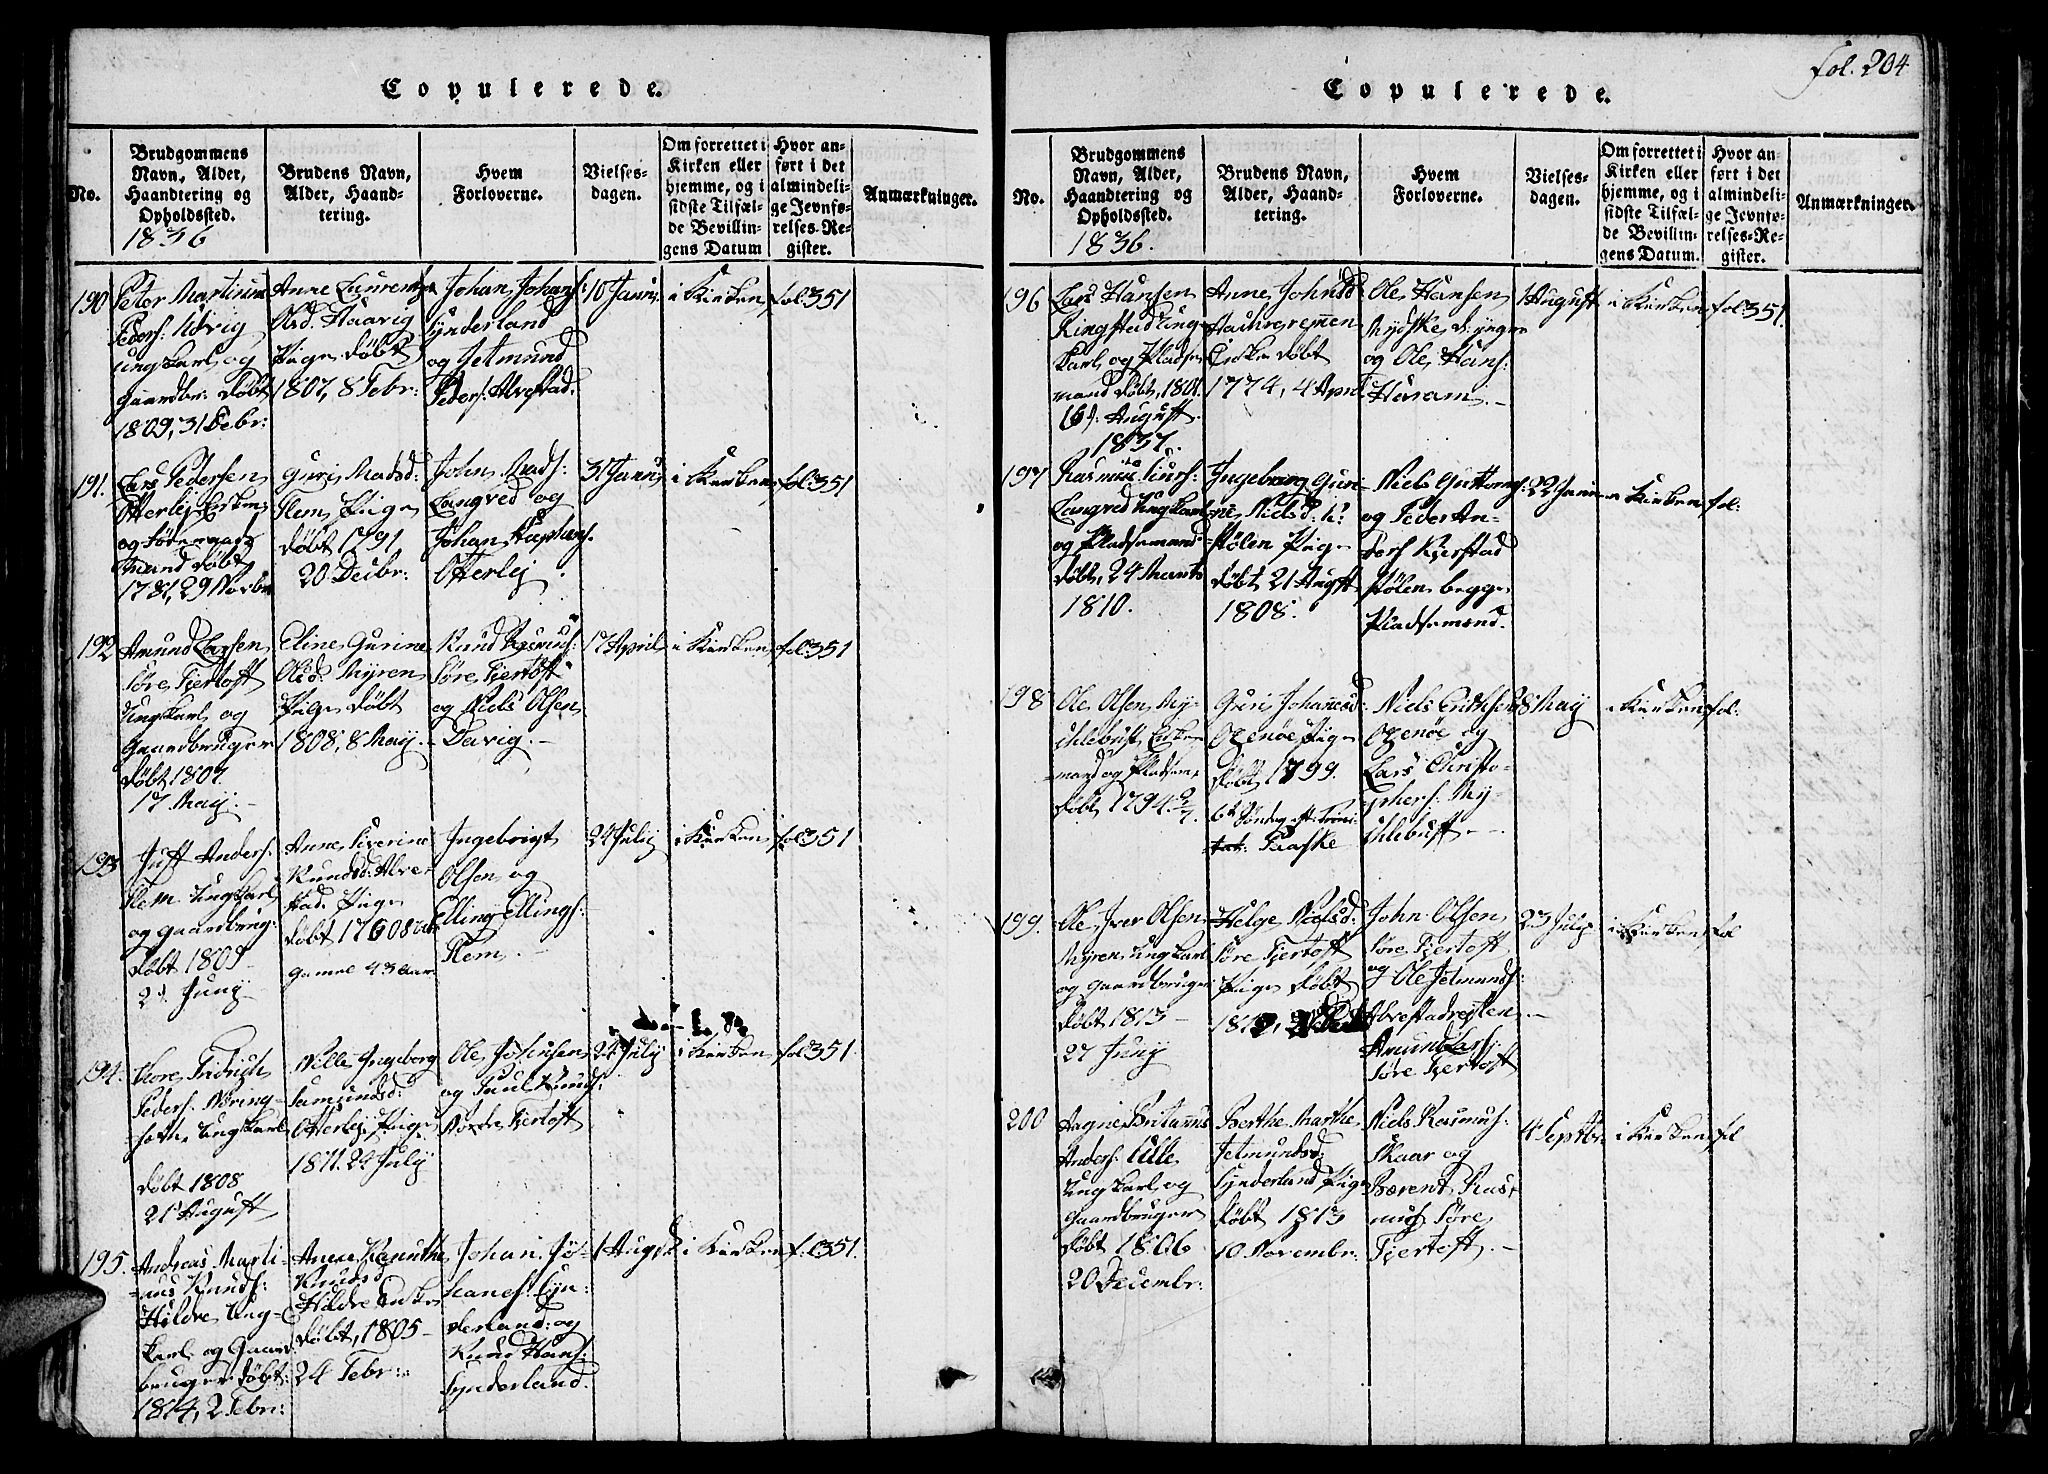 Copulerede.
No.
Brudgommens Navn, Alder, Haandtering og Opholdssted.
Brudens Navn, Alder, Haandtering.
Hvem Forloverne.
Vielsesdagen.
Om forrettet i Kirken eller hjemme, og i sidste Tilfælde Bevillingens Datum
Hvor anført i det almindelige Jevnførelses-Register.
Anmærkninger.
1836
190
Peter Martinus
Peders: Ulvig
ungkarl og
Gaardbr: Døbt
1809, 31 Debr:
Anne Laurentza
Olsd. Haarig
Pige Døbt
1807, 8 Febr:
Johan Johans:
Synderland
og Jetmund
Peders: Alvestad.
10 Janu
i Kirken
fol 351
191.
Lars Pedersen
Otterlej Enkem
mand Døbt
1781, 29 Novbr
Guri Madsd:
Flem Pige
Døbt 1791
20 Decbr:
John Mads:
Langved og
Johan
Otterlej
31 Janu:
i Kirken
fol 351
192
Amund Larsen
Søre Fjertoft
Ungkarl og
Gaardbruger
Døbt 1807.
17 May.
Eline Gurine
Olsd: Myren
Pige Døbt
1808, 8 May.
Knud Rasmus:
Søre Fjertoft
og Niels Olsen
Davig.
17 April
i Kirken
fol 351
193
Juff Anders:
Flem Ungkarl
og Gaardbrug:
Døbt 1805
2d Juny
Anne Siverine
Knudsd: Alve-
stad Pige
Gamel 43 Aar
Ingebrigt
Olsen og
Elling Ellings:
Flem.
24 July
i Kirken
fol 351
194.
Thore Fridrich
Peders:
Ungkarl
Døbt 1808
21 August
Nille Ingeborg
Samundsd:
Otterlej Pige
1811. 24 July
Ole Johnsen
og Paul Knuds:
Nordre Fjertoft
24 July
i Kirken
fol 351.
195.
Andreas Marti-
nus Knuds:
Hildre Ung-
karl og Gaard
bruger Døbt:
1814, 2 Febr:
Anne
Knudsd
Hildre Enke
Døbt, 1805
24 Febr:
Johan Jo-
hanes: Syn-
derland: og
Knud Hans:
Synderland.
1 August
i Kirken
fol 351.
fol. 204
Copulerede.
No.
Brudgommens Navn, Alder, Haandtering og Opholdssted.
Brudens Navn, Alder, Haandtering.
Hvem Forloverne.
Vielsesdagen.
Om forrettet i Kirken eller hjemme, og i sidste Tilfælde Bevillingens Datum.
Hvor anført i det almindelige Jevnførelses-Register.
Anmærkninger.
1836.
196
Lars Hansen
Ringstad Ung-
karl og Pladse
mand Døbt, 1801.
16d. August.
Anne Johnsd
Enke Døbt
1774, 4 April
Ole Hansen
og Ole Hans:
Haram.
1 August
i Kirken
fol 351.
1837.
197
Rasmus Siurs:
Langved Ungkarl
og Pladsemand
Døbt, 24 Marts
1810.
Ingeborg Guri-
ne Nielsd:
Stølen Pige
Døbt 21 Augst
1808.
Niels Guttorms:
og Peder An-
ders Kjerstad
Stølen begge
Pladsemænd.
22 Janu
i Kirken
fol:
198
Ole Olsen My-
klebust Enke-
mand og Pladsem.
Døbt 1794
Guri Johannesd:
Oxenøe Pige
Døbt 1799.
6te Søndag eft:
Paaske
Niels Erichsen
Oxenøe og
Lars Christo-
phers: My-
klebust
8 May
i Kirken
fol:
199.
Ole Iver Olsen
Myren Ungkarl
og Gaardbruger
Døbt 1813
27 Juny
Helge Nielsd:
Søre Fjertoft
Pige Døbt
John Olsen
Søre Fjertoft
og Ole Jetmunds:
Alvestadrejten
Amund Lars:
Søre Fjertoft
23 July
i Kirken
fol
200
Anders: Ulle
Ungkarl og
Gaardbruger
Døbt 1806
20 Decembr:
Berthe Marthe
Jetmundsd:
Synderland Pige
Døbt 1813
10 Novembr:
Niels Rasmus:
Skaar og
Bærent Ras-
mus: Søre
Fjertoft.
4 Septbr
i Kirken
fol